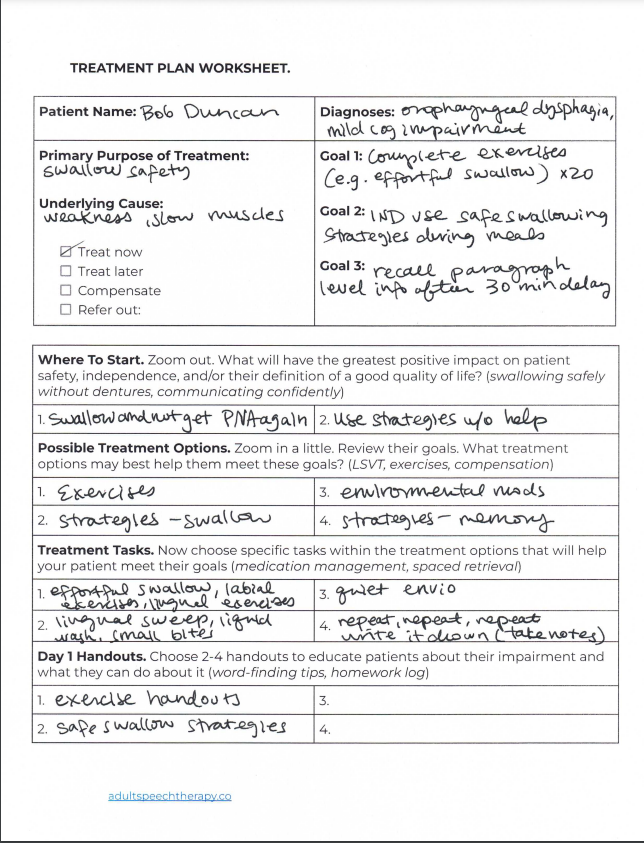 TREATMENT PLAN WORKSHEET.
Patient Name: Bob Duncan
Diagnoses: oropharyngeal dysphagia,
mild cog impairment
Primary Purpose of Treatment:
swallow safety
Underlying Cause:
weakness, slow muscles
☑ Treat now
☐ Treat later
☐ Compensate
☐ Refer out:
Goal 1: Complete exercises
(e.g. effortful swallow) x20
Goal 2: IND use safe swallowing
strategies during meals
Goal 3: recall paragraph
level info after 30 min delay
Where To Start. Zoom out. What will have the greatest positive impact on patient
safety, independence, and/or their definition of a good quality of life? (swallowing safely
without dentures, communicating confidently)
1. swallow and not get PNA again
2. Use strategies w/o help
Possible Treatment Options. Zoom in a little. Review their goals. What treatment
options may best help them meet these goals? (LSVT, exercises, compensation)
1. Exercises
3. environmental mods
2. strategies - swallow
4. strategies - memory
Treatment Tasks. Now choose specific tasks within the treatment options that will help
your patient meet their goals (medication management, spaced retrieval)
1. effortful swallow, labial
exercises, lingual exercises
3. quiet enviro
2. lingual sweep, liquid
wash, small bites
4. repeat, repeat, repeat
write it down (take notes)
Day 1 Handouts. Choose 2-4 handouts to educate patients about their impairment and
what they can do about it (word-finding tips, homework log)
1. exercise handouts
3.
2. safe swallow strategies
4.
adultspeechtherapy.co